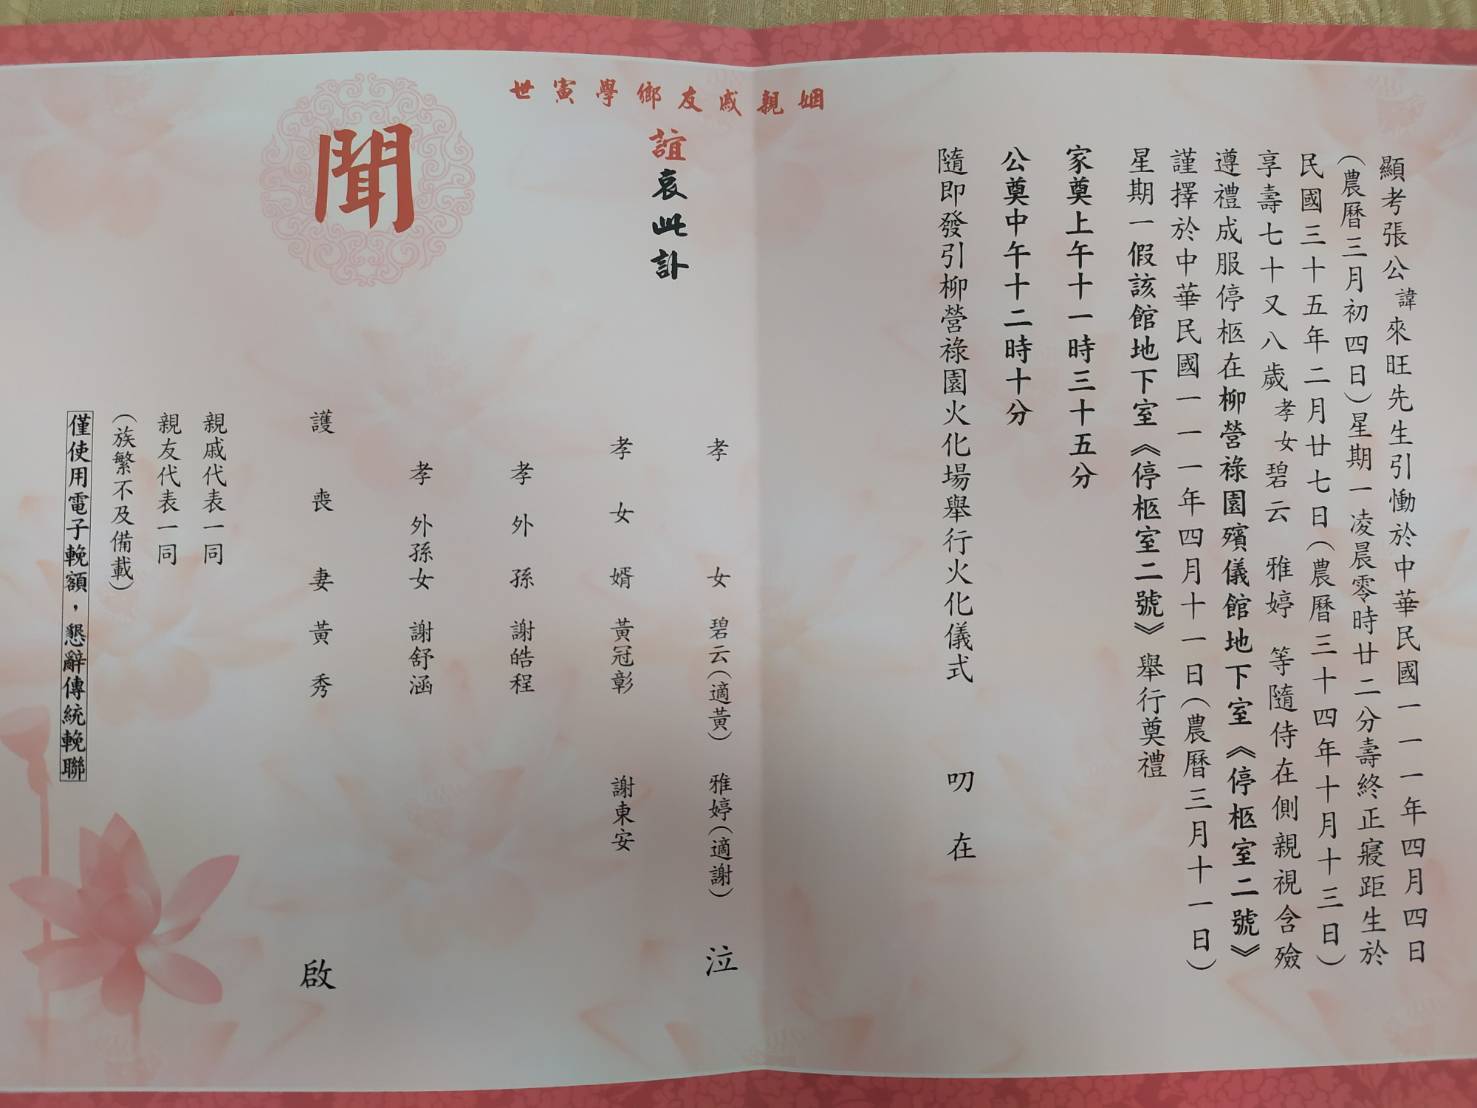 顯考張公諱來旺先生引慟於中華民國一一一年四月四日
(農曆三月初四日)星期一凌晨零時廿二分壽終正寢距生於
民國三十五年二月廿七日(農曆三十四年十月十三日)
享壽七十又八歲孝女碧云 雅婷 等隨侍在側親視含殮
遵禮成服停柩在柳營祿園殯儀館地下室《停柩室二號》
謹擇於中華民國一一一年四月十一日(農曆三月十一日)
星期一假該館地下室《停柩室二號》舉行奠禮
家奠上午十一時三十五分
公奠中午十二時十分
隨即發引柳營祿園火化場舉行火化儀式 叨 在
姻親戚友鄉學寅世
誼哀此訃
聞
孝 女 碧云(適黃) 雅婷(適謝) 泣
孝 女 婿 黃冠彰 謝東安
孝 外 孫 謝皓程
孝 外孫女 謝舒涵
護 喪 妻 黃 秀 啟
親戚代表一同
親友代表一同
(族繁不及備載)
僅使用電子輓額，懇辭傳統輓聯